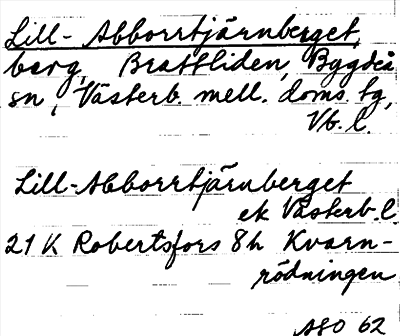 Lill-Abborrtjärnberget,
berg, Brattliden, Bygdeå
sn, Västerb. mell. doms. tg,
Vb. l.
Lill-Abborrtjärnberget
ek Västerb. l.
21 K Robertsfors 8h Kvarn-
rödningen
ASO 62